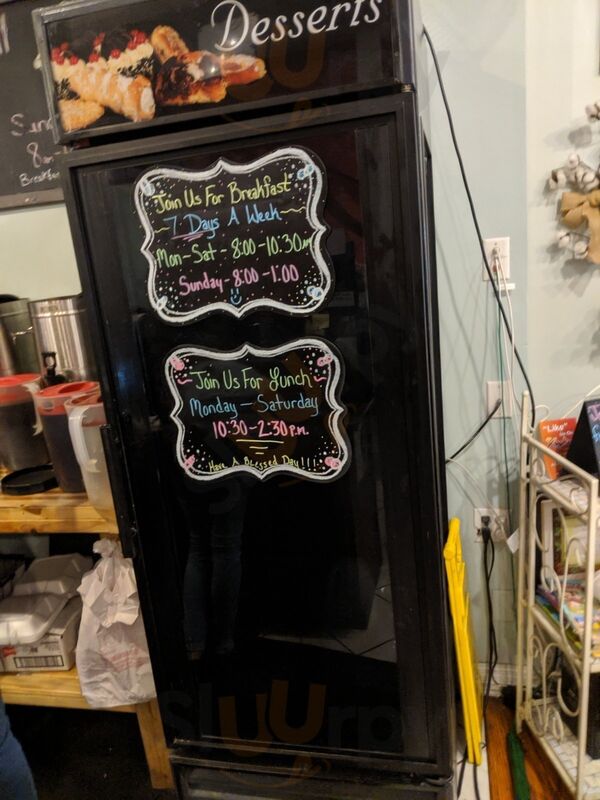 Desserts
Join Us For Breakfast
7 Days A Week
Mon-Sat - 8:00-10:30am
Sunday - 8:00-1:00
Join Us For Lunch
Monday - Saturday
10:30-2:30 P.M.
Have A Blessed Day!!!
"Like"
Sluurpy